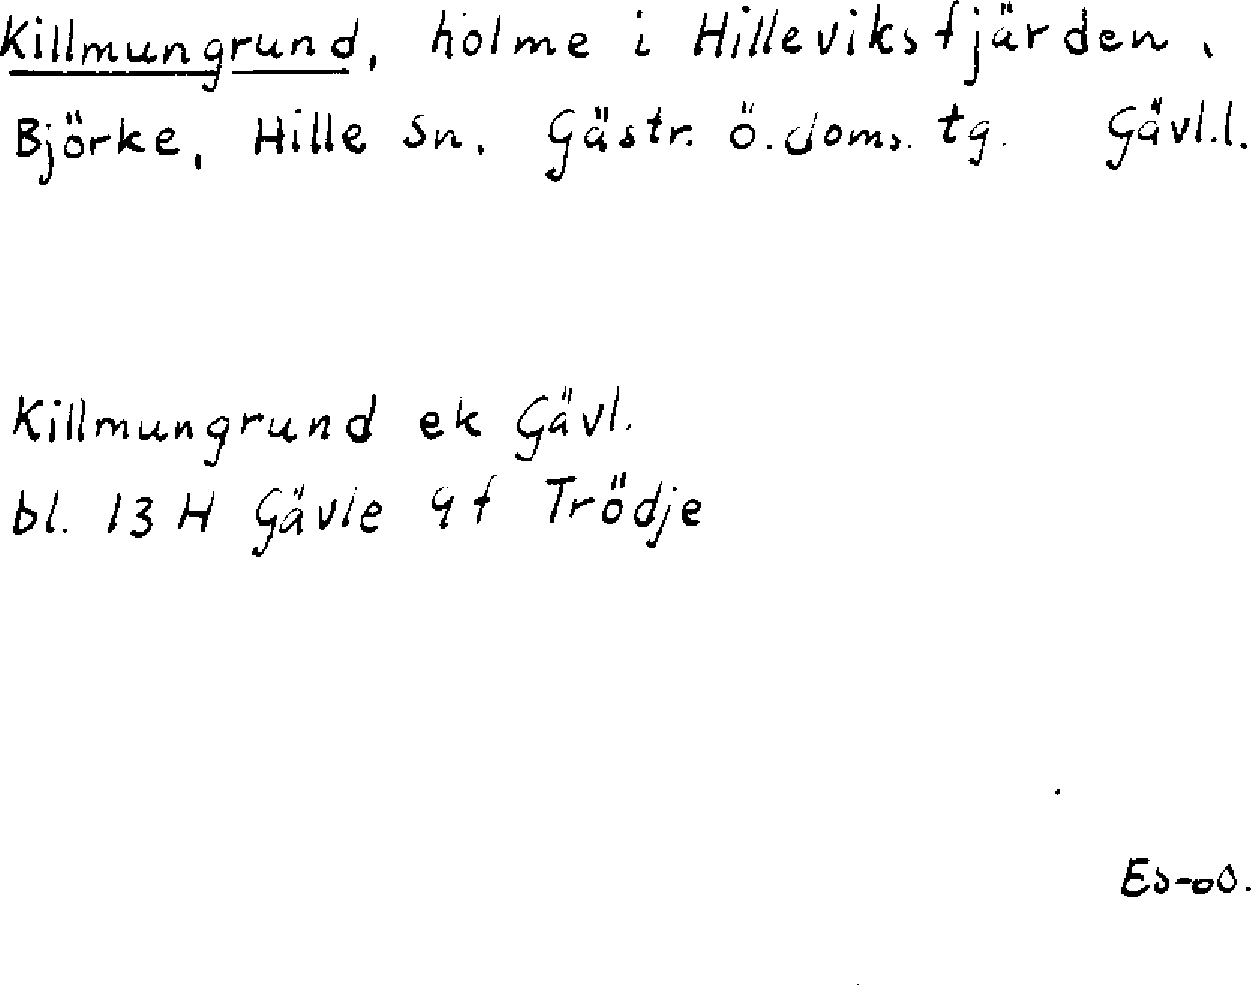 Killmungrund, holme i Hilleviksfjärden,
Björke, Hille Sn. Gästr. ö. doms. tg. Gävl.l.
Killmungrund ek Gävl.
bl. 13 H Gävle 9 f Trödje